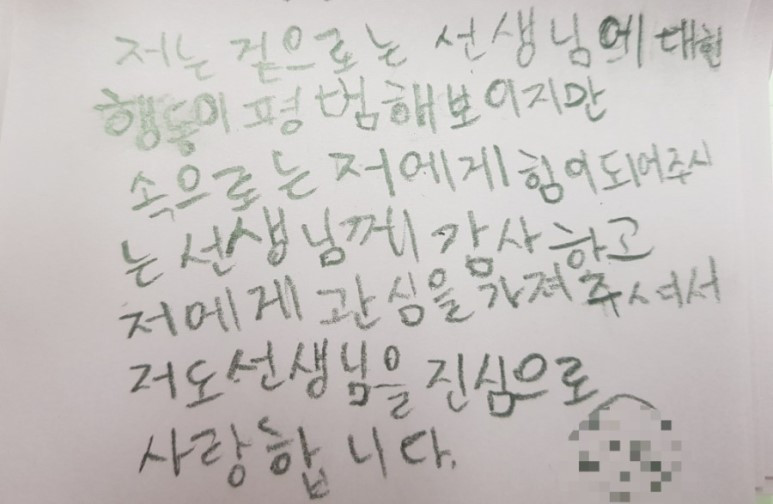 저는 겉으로는 선생님에 대한
행동이 평범해보이지만
속으로는 저에게 힘이되어주시
는 선생님께 감사하고
저에게 관심을 가져 주셔서
저도선생님을 진심으로
사랑합니다.